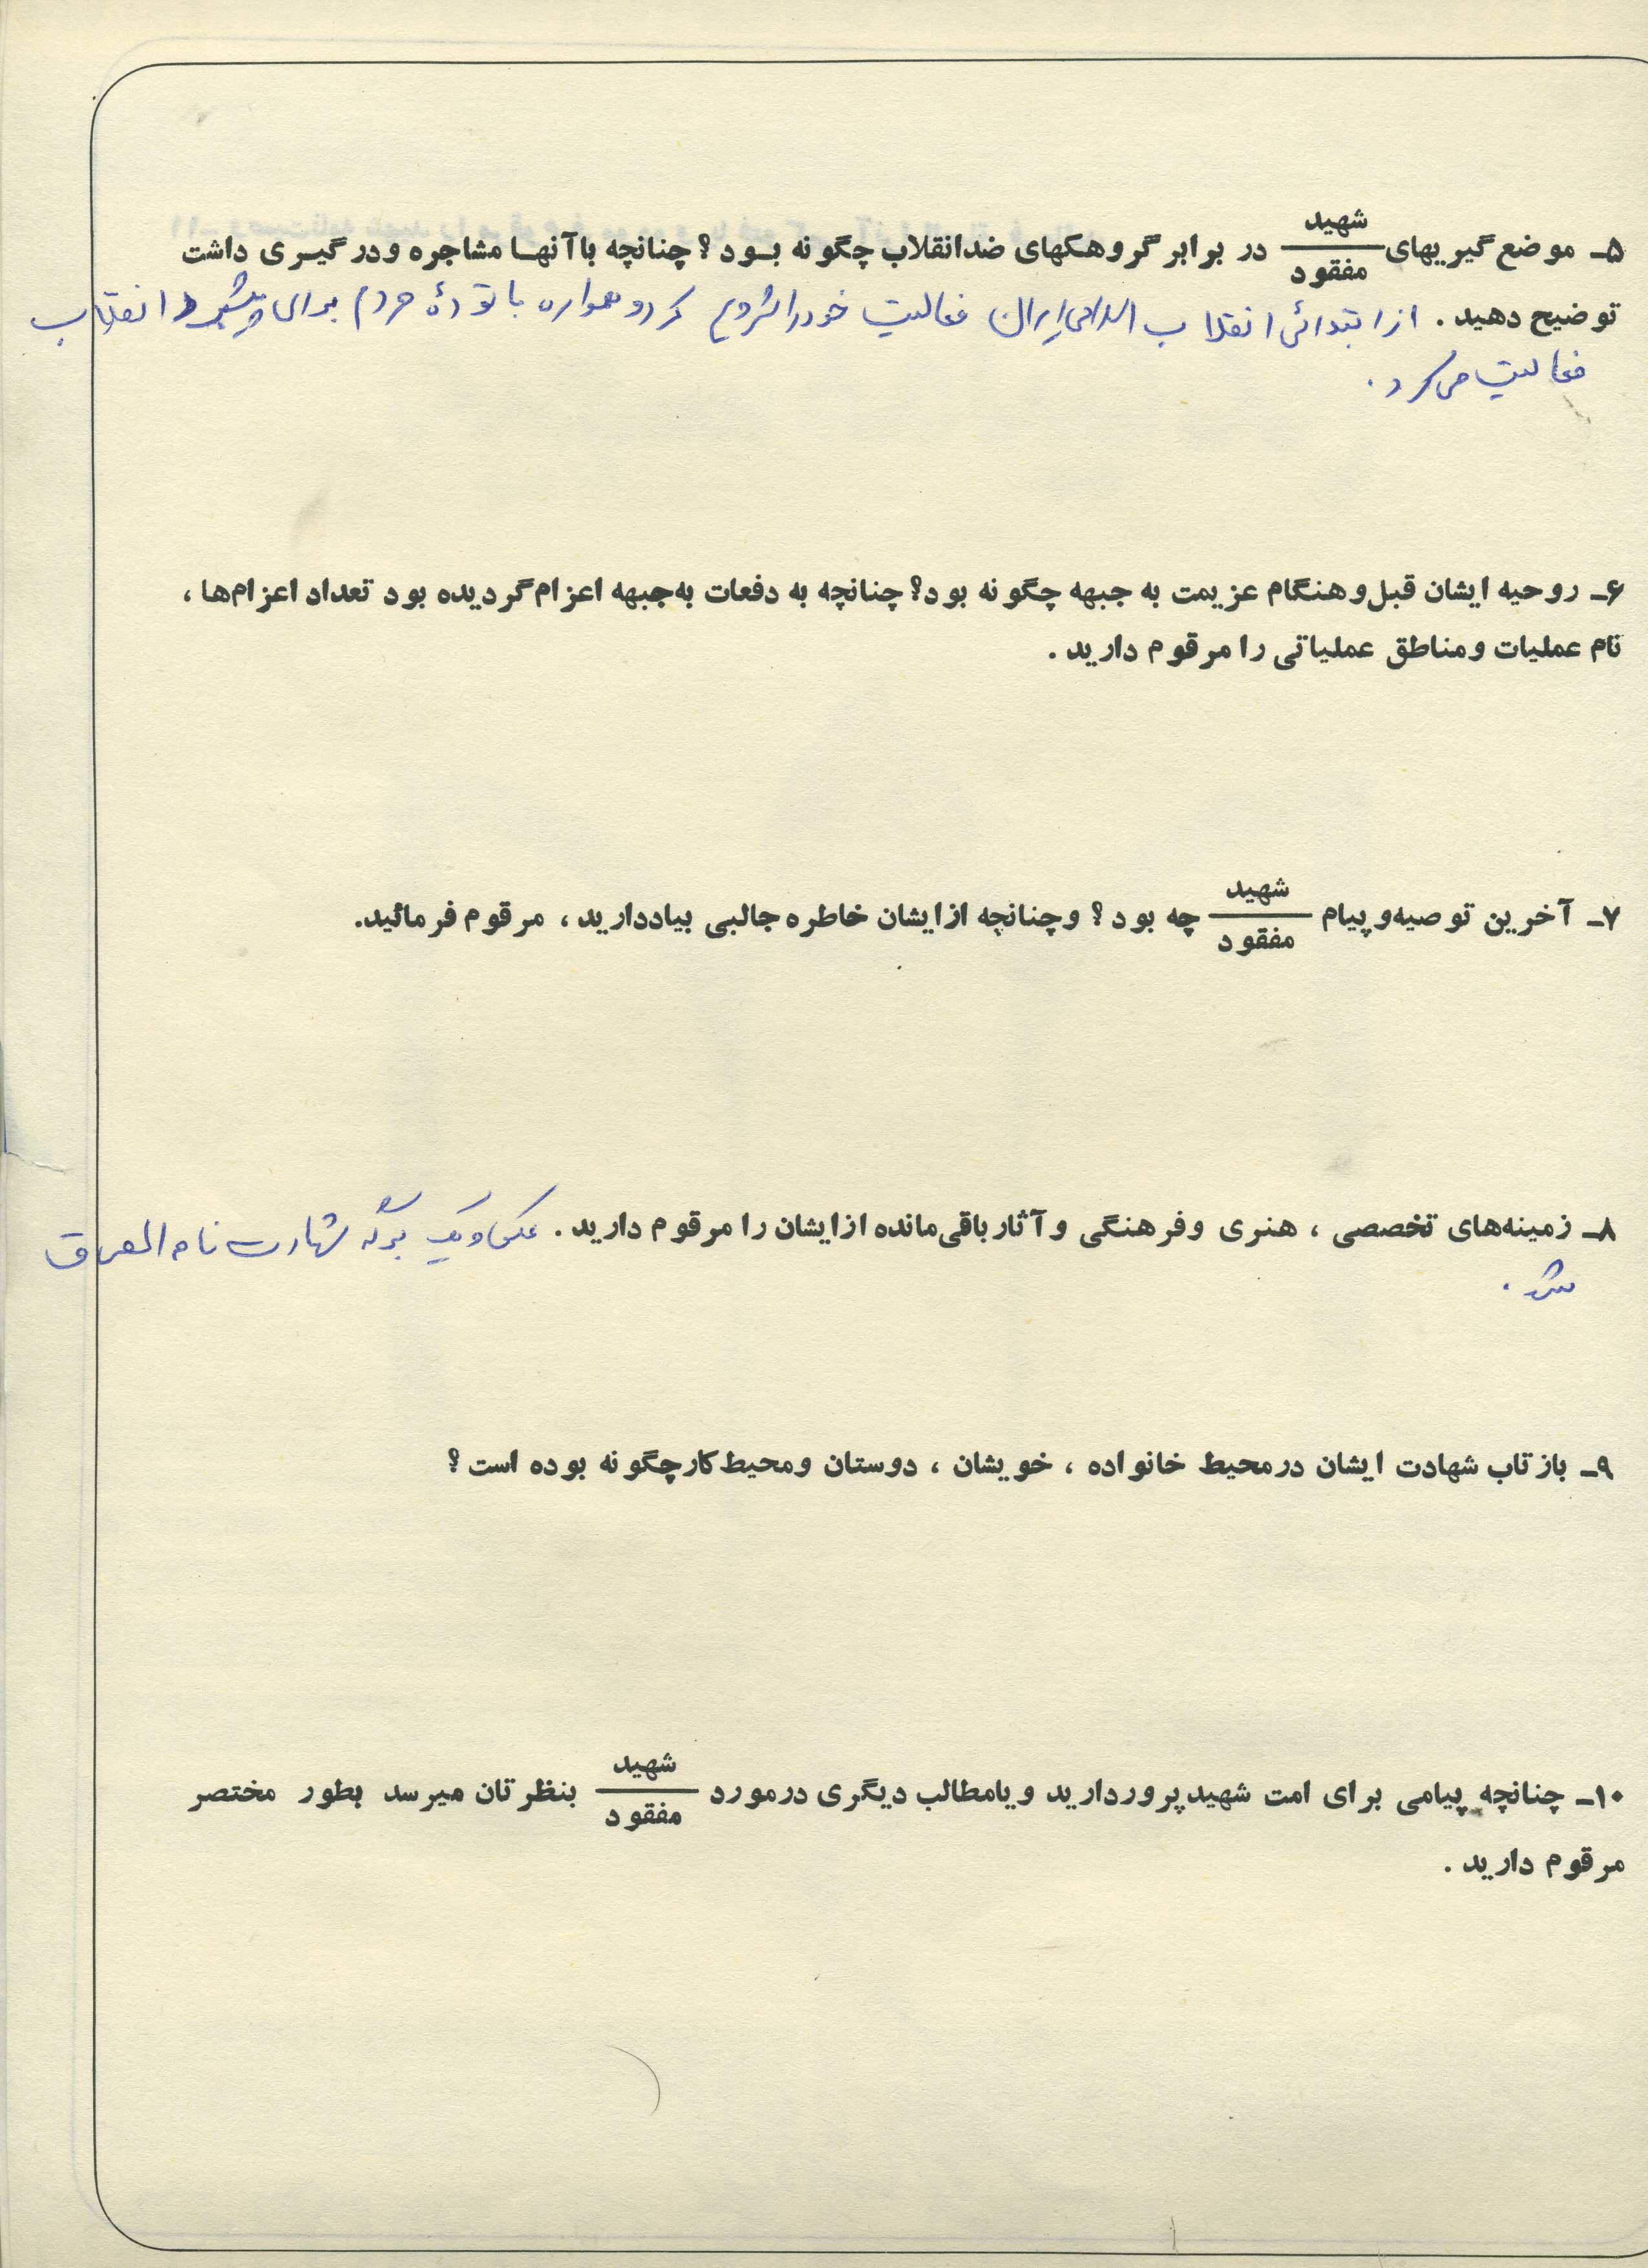 ۵ـ موضع‌گیریهای شهید / مفقود در برابر گروهکهای ضدانقلاب چگونه بود؟ چنانچه با آنها مشاجره و درگیری داشت
توضیح دهید. از ابتدائی انقلاب اسلامی ایران فعالیت خود را شروع کرد و همواره با تودهٔ مردم برای پیشبرد انقلاب
فعالیت می‌کرد.
۶ـ روحیه ایشان قبل و هنگام عزیمت به جبهه چگونه بود؟ چنانچه به دفعات به جبهه اعزام گردیده بود تعداد اعزام‌ها،
نام عملیات و مناطق عملیاتی را مرقوم دارید.
۷ـ آخرین توصیه و پیام شهید / مفقود چه بود؟ و چنانچه از ایشان خاطره جالبی بیاد دارید، مرقوم فرمائید.
۸ـ زمینه‌های تخصصی، هنری و فرهنگی و آثار باقی‌مانده از ایشان را مرقوم دارید. عکس و یک برگه شهادت نامه الصاق
شد.
۹ـ بازتاب شهادت ایشان در محیط خانواده، خویشان، دوستان و محیط کار چگونه بوده است؟
۱۰ـ چنانچه پیامی برای امت شهیدپرور دارید و یا مطالب دیگری در مورد شهید / مفقود بنظرتان میرسد بطور مختصر
مرقوم دارید.